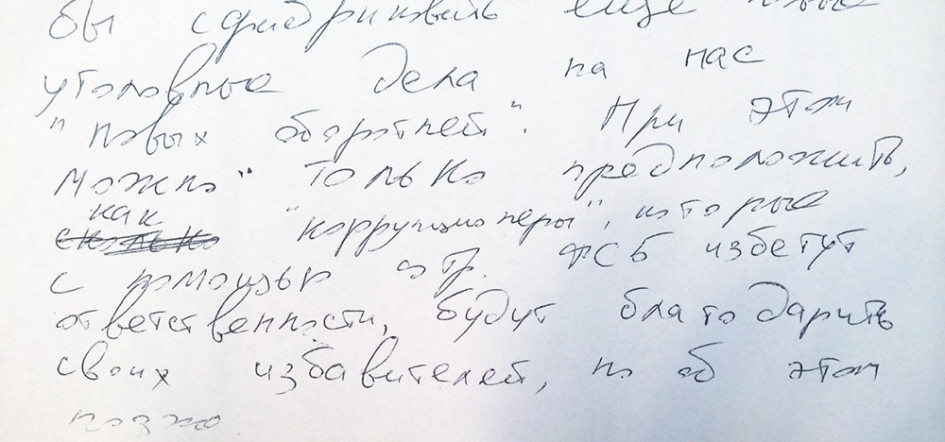 бы сфабриковать еще новые
уголовные дела на нас
"новых оборотней". При этом
можно только предположить,
как "коррупционеры", которые
с помощью отр. ФСБ избегут
ответственности, будут благодарить
своих избавителей, но об этом
позже